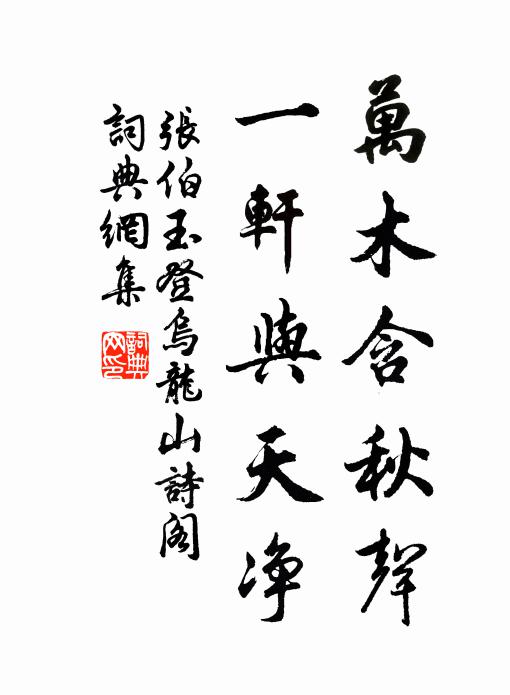 萬木含秋聲
一軒與天淨
張伯玉登烏龍山詩閣
詞典網集
詞典網印